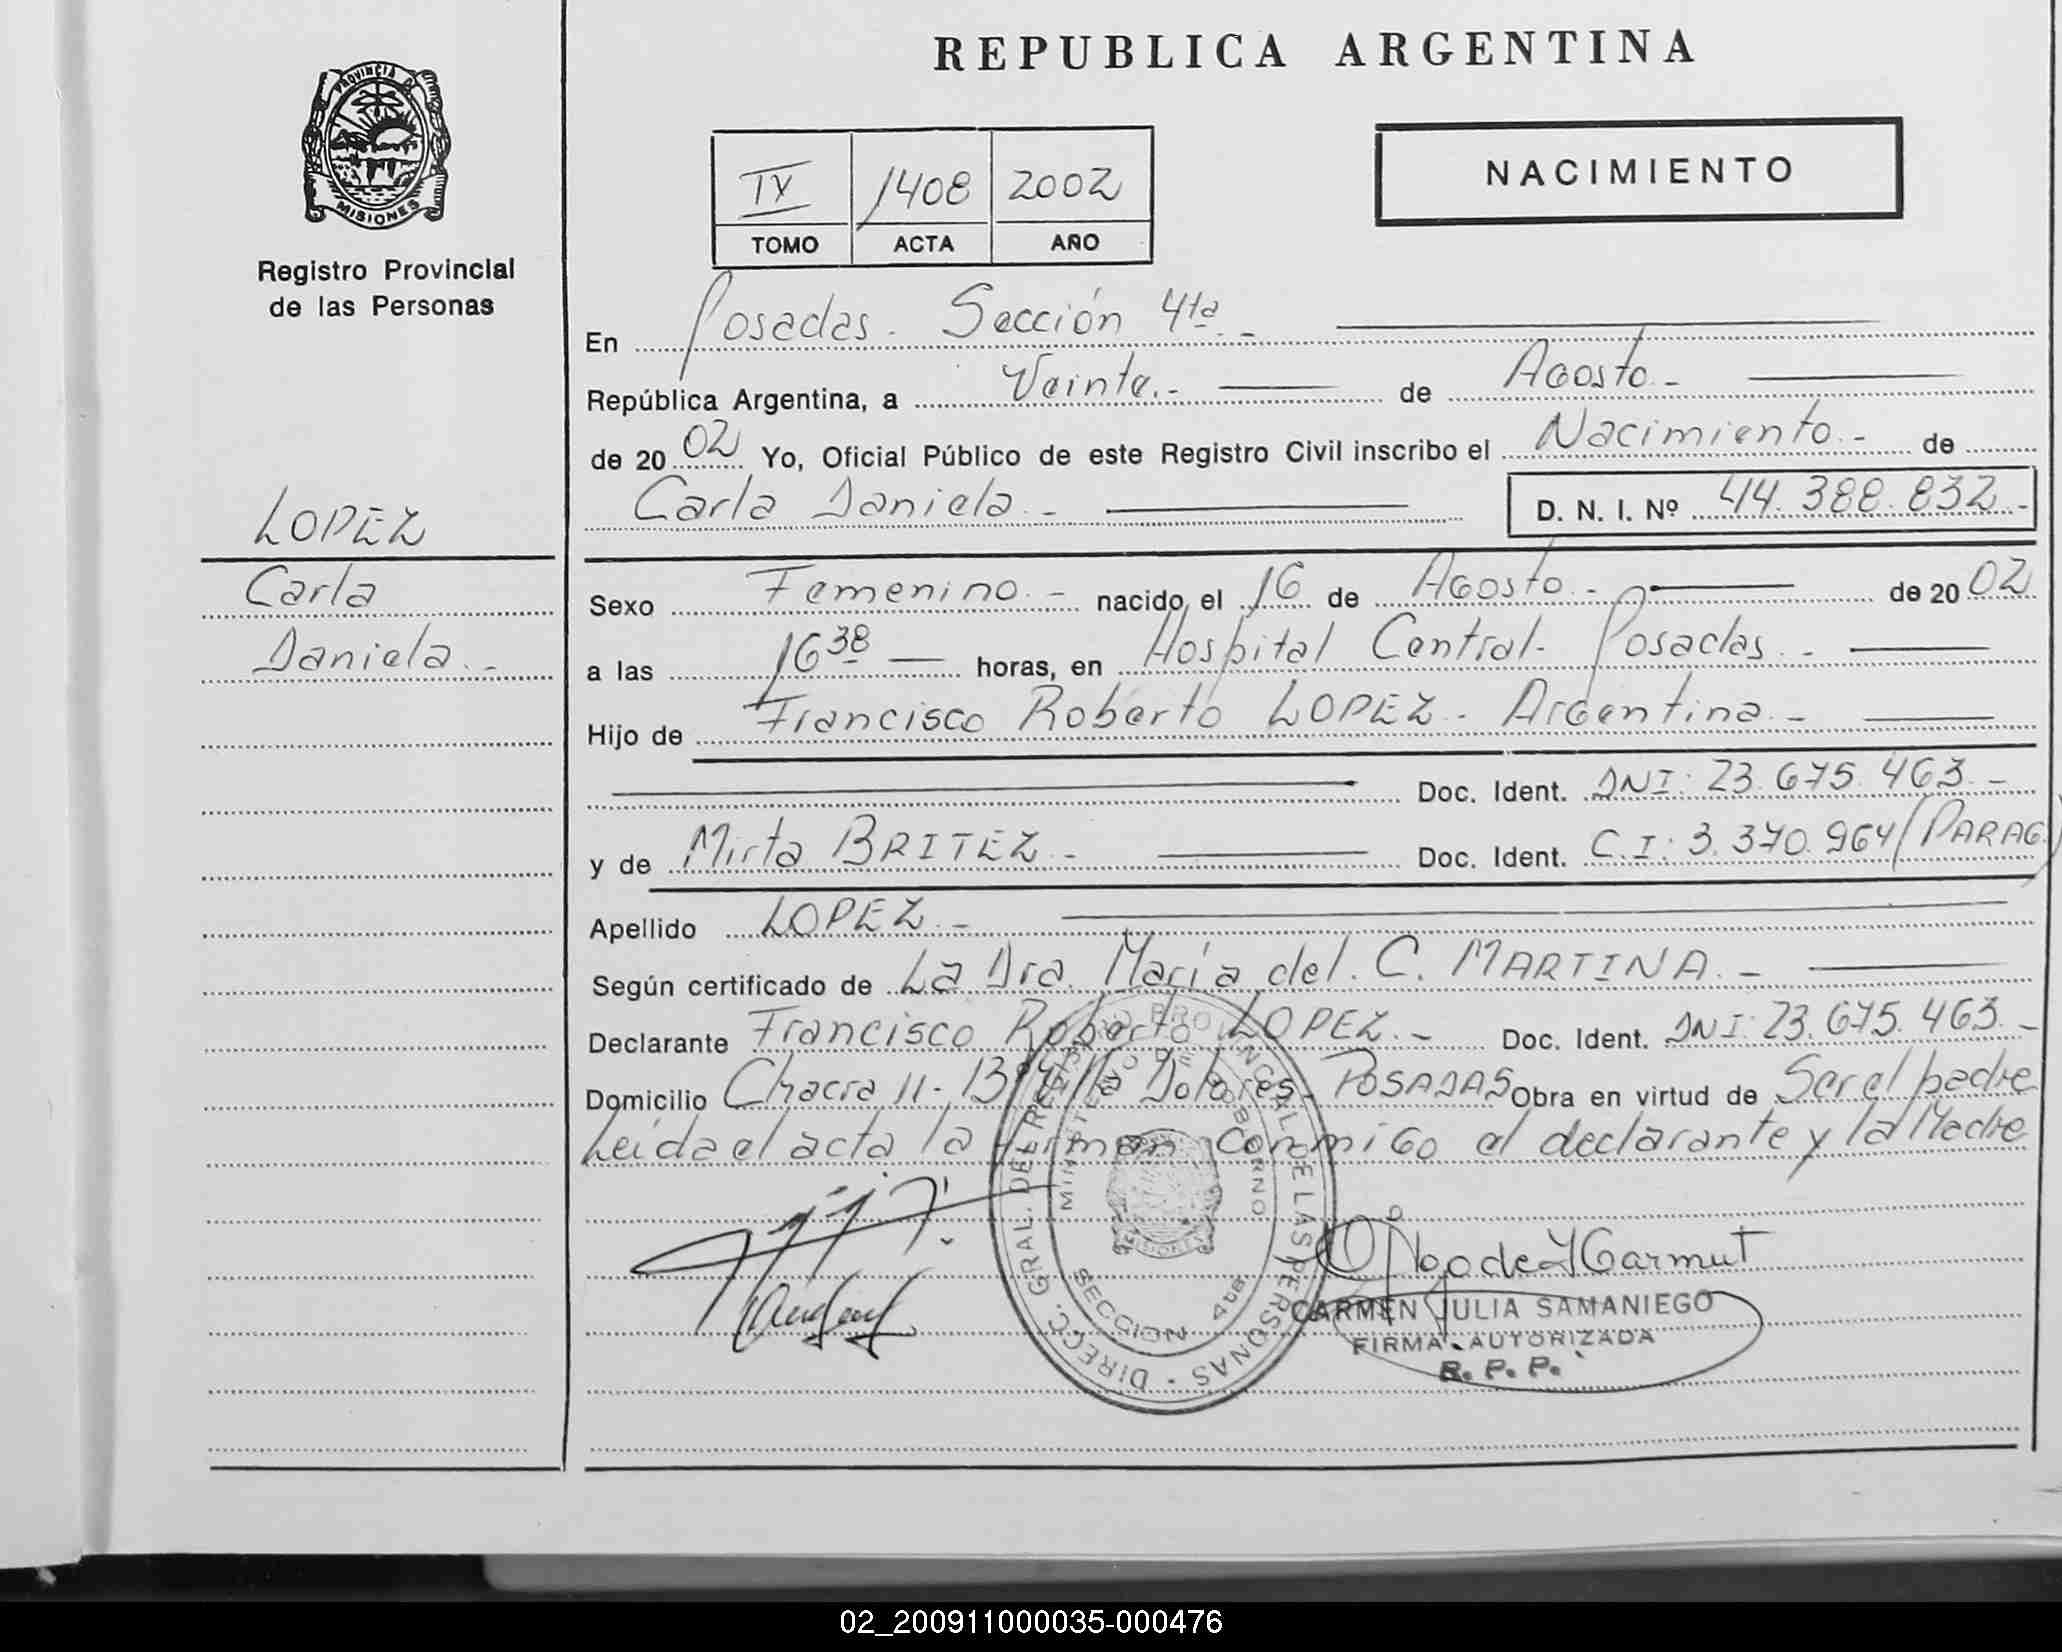 REPUBLICA ARGENTINA
PROVINCIA DE
MISIONES
Registro Provincial
de las Personas
IV 1408 2002
TOMO ACTA AÑO
NACIMIENTO
En Posadas. Sección 4ta.-
República Argentina, a Veinte.- de Agosto.-
de 2002 Yo, Oficial Público de este Registro Civil inscribo el Nacimiento.- de
Carla Daniela.- D. N. I. Nº 44.388.832.-
LOPEZ
Carla
Daniela.-
Sexo Femenino.- nacido, el 16 de Agosto.- de 2002
a las 16 38 horas, en Hospital Central- Posadas.-
Hijo de Francisco Roberto LOPEZ- Argentina.-
Doc. Ident. DNI: 23.675.463.-
y de Mirta BRITEZ.- Doc. Ident. C.I: 3.370.964 (PARAG.)
Apellido LOPEZ.-
Según certificado de La Dra. María del. C. MARTINA.-
Declarante Francisco Roberto LOPEZ.- Doc. Ident. DNI: 23.675.463.-
Domicilio Chacra 11-139 Villa Dolores- POSADAS Obra en virtud de Ser el padre
Leída el acta la firman conmigo el declarante y la Madre
DIRECC. GRAL. DEL REGISTRO PROVINCIAL DE LAS PERSONAS
MINISTERIO DE GOBIERNO
MISIONES
SECCION 4ta
CARMEN JULIA SAMANIEGO
FIRMA AUTORIZADA
R. P. P.
02_200911000035-000476